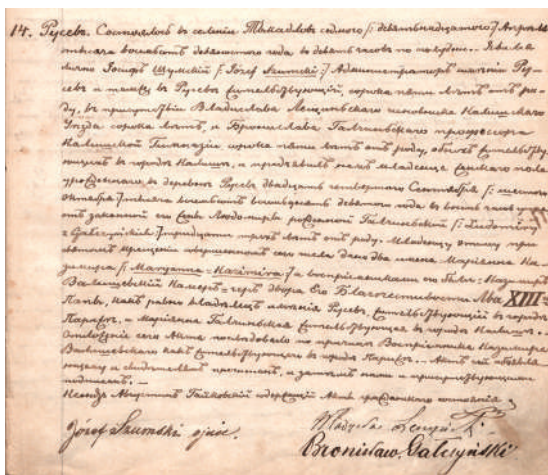 14. Русовъ. Состоялось въ селеніи Токадловъ седмого /: девятьнадцатого :/ Апрѣля
тысяча восьмьсотъ девяностого года въ девять часовъ по полудни. Явился
лично Іосифъ Шумскій /: Józef Szumski :/ Администраторъ имѣнія Ру-
совъ и тамъ въ Русовѣ жительствующій, сорока пяти лѣтъ отъ ро-
ду, въ присутствіи Владислава чиновника Калишскаго
Уѣзда сорока лѣтъ, и Бронислава Галчинскаго профессора
Калишской Гимназіи сорока пяти лѣтъ отъ роду, обоихъ жительству-
ющихъ въ городѣ Калишѣ, и предъявилъ намъ младенца женскаго пола
урожденнаго въ деревнѣ Русовѣ двадцать четвертаго Сентября /: шестого
Октября :/ тысяча восьмьсотъ восемьдесятъ девятого года въ восемь часовъ утра
отъ законной его жены Людомиры рожденной Галчинской /: Ludomiry
z Gałczyńskich :/ тридцати трехъ лѣтъ отъ роду. Младенцу этому при
святомъ крещеніи совершенномъ сего числа даны два имена Маріанна Ка-
зимира /: Maryanna-Kazimira :/ а воспріемниками его были: Казимиръ
Камеръ-геръ двора Его Льва XIII-
Папы, какъ равно владѣлецъ имѣнія Русовъ, жительствующій въ городѣ
Парижѣ, и Маріанна Галчинская жительствующая въ городѣ Калишѣ.
сего Акта послѣдовало по причинѣ Воспріемника Казимира
какъ жительствующаго въ городѣ Парижѣ. Актъ сей объявля-
ющему и свидѣтелямъ прочитанъ, и затѣмъ нами и присутствующими
подписанъ. —
Ксендзъ содержащій Акты гражданскаго состоянія
Józef Szumski ojciec.
Bronisław Gałczyński